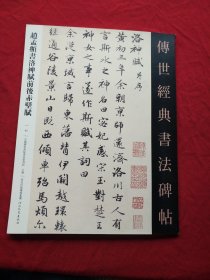 傳世經典書法碑帖
洛神賦 并序
黃初三年余朝京師還濟洛川古人有
言斯水之神名曰宓妃感宋玉對楚王
神女之事遂作斯賦其詞曰
余從京域言歸東藩背伊闕越轘轅
經通谷陵景山日既西傾車殆馬煩爾
趙孟頫書洛神賦前後赤壁賦